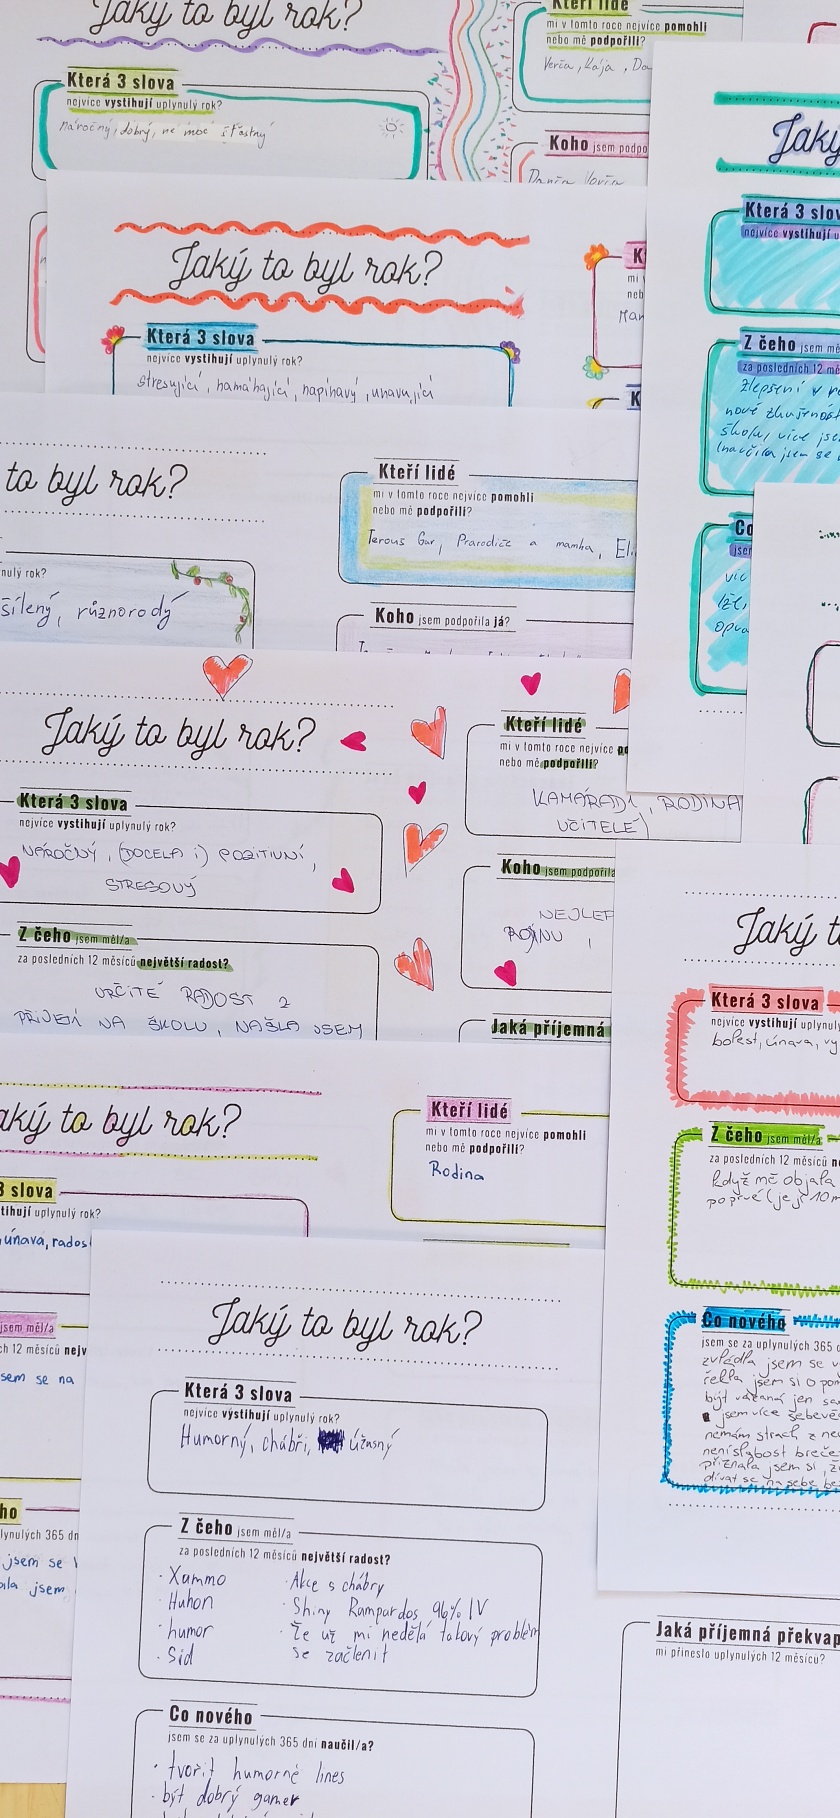 Jaký to byl rok?
Která 3 slova
nejvíce vystihují uplynulý rok?
náročný, dobrý, ne moc šťastný
Kteří lidé
mi v tomto roce nejvíce pomohli
nebo mě podpořili?
Verča, Kája, Da
Koho jsem podpo
Jaký
Která 3 slov
nejvíce vystihují u
Z čeho jsem mě
za posledních 12 mě
zlepšení v
nové zkušenost
školu, více jse
(naučila jsem se
Co
jser
víc
lže,
opra
Jaký to byl rok?
Která 3 slova
nejvíce vystihují uplynulý rok?
stresující, namáhající, napínavý, unavující
K
mi v
neb
Mar
K
to byl rok?
nulý rok?
šílený, různorodý
Kteří lidé
mi v tomto roce nejvíce pomohli
nebo mě podpořili?
Terous Gar, Prarodiče a mamka, El
Koho jsem podpořila já?
Jaký to byl rok?
Která 3 slova
nejvíce vystihují uplynulý rok?
NÁROČNÝ, (DOCELA I) POZITIVNÍ,
STRESOVÝ
Z čeho jsem měl/a
za posledních 12 měsíců největší radost?
URČITĚ RADOST Z
PŘIJETÍ NA ŠKOLU, NAŠLA JSEM
Kteří lidé
mi v tomto roce nejvíce po
nebo mě podpořili?
KAMARÁDI, RODINA
UČITELÉ
Koho jsem podpořila
NEJLEP
RODINU,
Jaká příjemná
Jaký t
Která 3 slova
nejvíce vystihují uplynulý
bolest, únava, vy
Z čeho jsem měl/a
za posledních 12 měsíců n
Když mě objala
poprvé (její 10 m
Co nového
jsem se za uplynulých 365 d
zvládla jsem se v
řekla jsem si o pom
být vázaná jen sa
jsem více sebevě
nemám strach z ne
není slabost breče
přiznala jsem si, ž
dívat se na sebe be
aký to byl rok?
3 slova
tihují uplynulý rok?
únava, rados
jsem měl/a
ch 12 měsíců nejv
sem se na
ho
lynulých 365 dn
jsem se
ala jsem
Kteří lidé
mi v tomto roce nejvíce pomohli
nebo mě podpořili?
Rodina
Jaký to byl rok?
Která 3 slova
nejvíce vystihují uplynulý rok?
Humorný, chábři, úžasný
Z čeho jsem měl/a
za posledních 12 měsíců největší radost?
· Xummo
· Huhon
· humor
· Sid
· Akce s chábry
· Shiny Rampardos 96% IV
· Že už mi nedělá takový problém
se začlenit
Co nového
jsem se za uplynulých 365 dní naučil/a?
· tvořit humorné lines
· být dobrý gamer
Jaká příjemná překvap
mi přineslo uplynulých 12 měsíců?